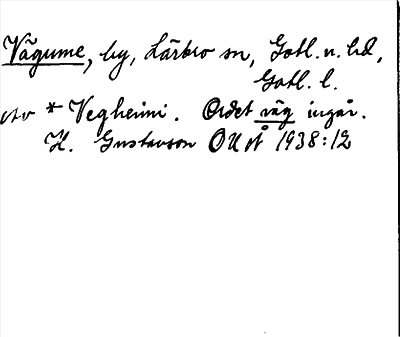 Vägume, by, Lärbro sn, Gotl. n. hd,
Gotl. l.
av * Vegheimi. Ordet väg ingår.
H. Gustavson OUÅ 1938:12